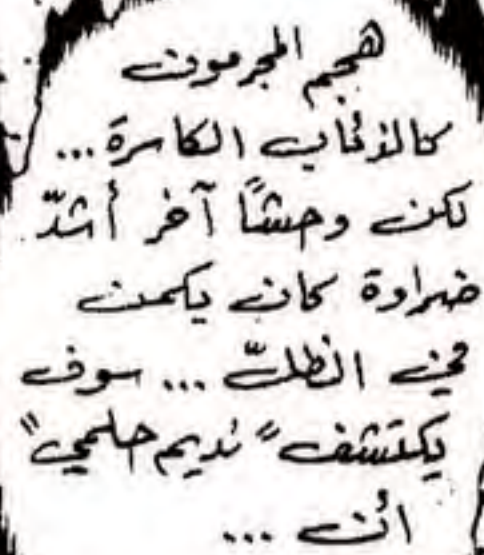 هجم المجرمون
كالذئاب الكاسرة...
لكن وحشًا آخر أشدّ
ضراوة كان يكمن
في الظلّ... سوف
يكتشف "نديم حلمي"
أن...